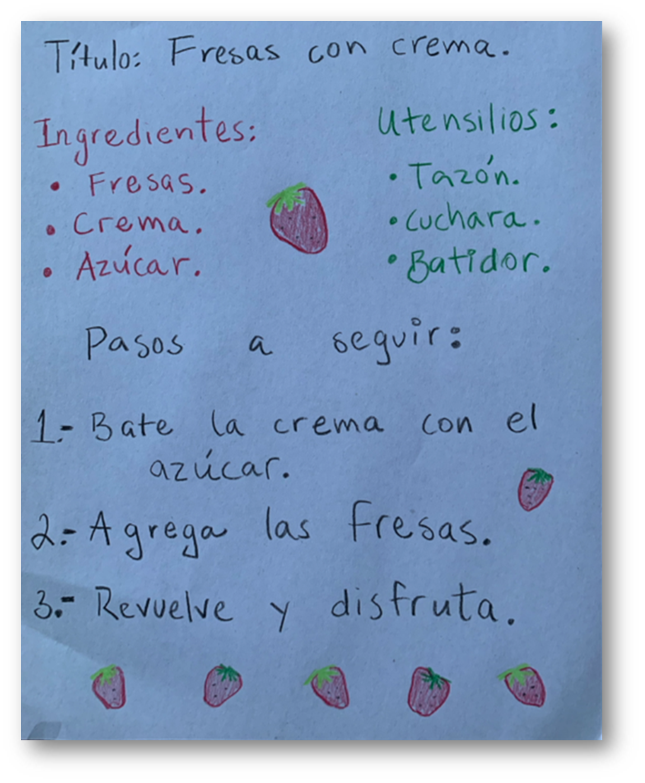 Título: Fresas con crema.
Ingredientes:
• Fresas.
• Crema.
• Azúcar.
Utensilios:
• Tazón.
• Cuchara.
• Batidor.
Pasos a seguir:
1.- Bate la crema con el
azúcar.
2.- Agrega las fresas.
3.- Revuelve y disfruta.